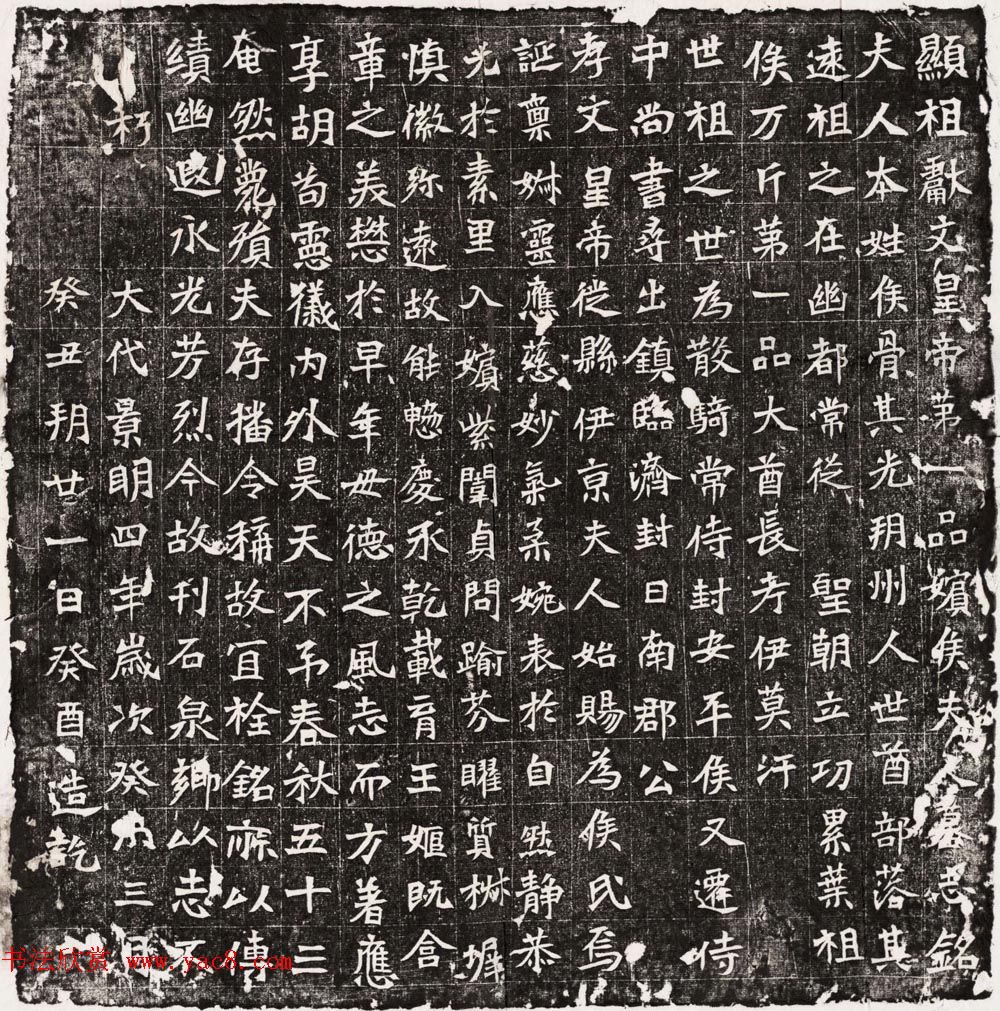 顯祖獻文皇帝第一品嬪侯夫人墓志銘
夫人本姓侯骨其先朔州人世酋部落其
遠祖之在幽都常從 聖朝立功累葉祖
侯万斤第一品大酋長考伊莫汗
世祖之世為散騎常侍封安平侯又遷侍
中尚書尋出鎮臨濟封日南郡公
孝文皇帝徙縣伊京夫人始賜為侯氏焉
誕稟姌靈應慈妙氣柔婉表於自然静恭
光於素里入嬪紫闈貞問踰芬曜質椒墀
慎徽弥遠故能惣慶承乾載育王姬既含
章之美懋於早年毋德之風志而方著應
享胡苟靈儀內外昊天不弔春秋五十三
奄然薨殞夫存播令稱故宜銓銘庶以專
績幽遐永光芳烈今故刊石泉鄉以志不
朽
大代景明四年歲次癸未三月
癸丑朔廿一日癸酉造訖
书法欣赏 www.yac8.com